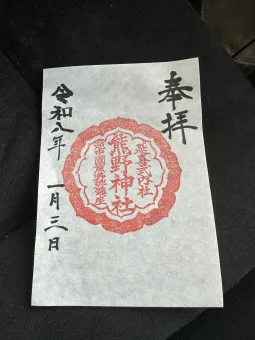 奉拝
延喜式内社
熊野神社
令和八年
一月三日